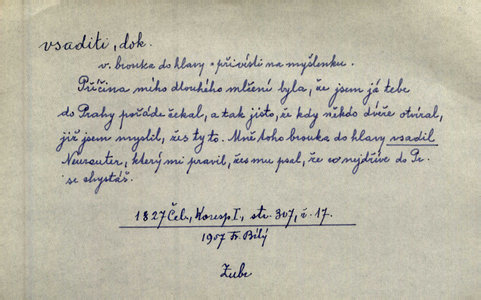 vsaditi, dok.
v. brouka do hlavy = přivésti na myšlenku.
Příčina mého dlouhého mlčení byla, že jsem já tebe
do Prahy pořáde čekal, a tak jisto, že kdy někdo dvéře otvíral,
již jsem myslil, žes ty to. Mně toho brouka do hlavy vsadil
Neureuter, který mi pravil, žes mu psal, že co nejdříve do Pr.
se chystáš.
1827 Čel., Koresp I, str. 307, ř. 17.
1907 Fr. Bílý
Zube